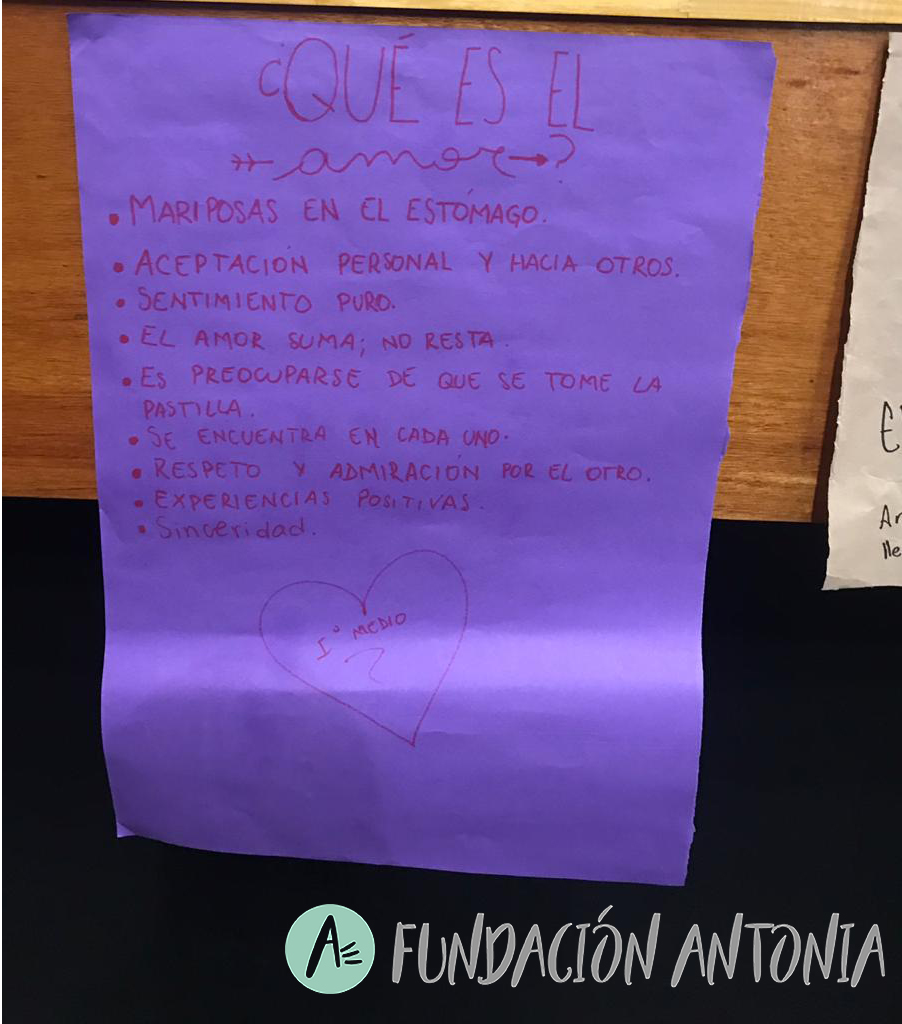 ¿QUÉ ES EL
amor?
• MARIPOSAS EN EL ESTÓMAGO.
• ACEPTACIÓN PERSONAL Y HACIA OTROS.
• SENTIMIENTO PURO.
• EL AMOR SUMA; NO RESTA.
• ES PREOCUPARSE DE QUE SE TOME LA
PASTILLA.
• SE ENCUENTRA EN CADA UNO.
• RESPETO Y ADMIRACIÓN POR EL OTRO.
• EXPERIENCIAS POSITIVAS.
• Sinceridad.
I° MEDIO
A FUNDACIÓN ANTONIA